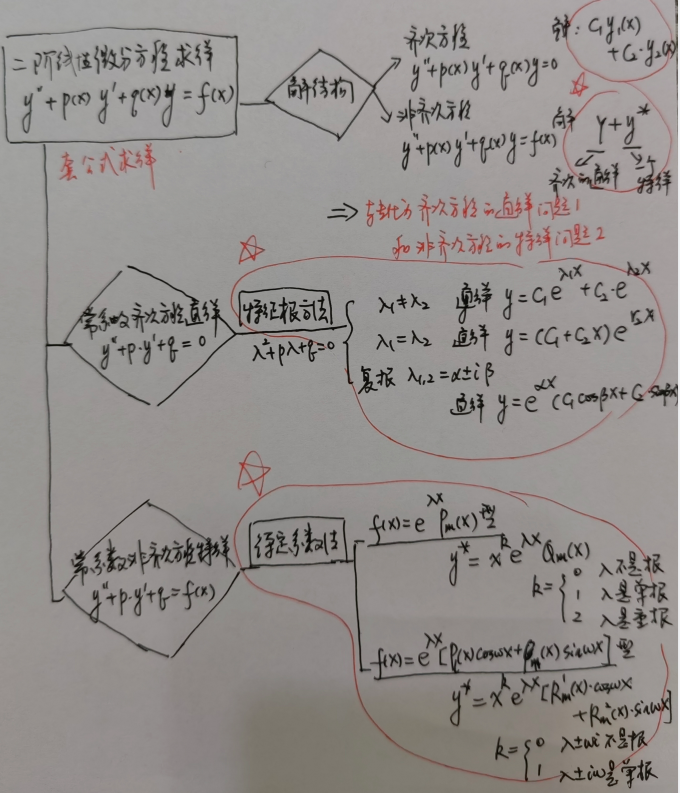 二阶线性微分方程求解
y″+p(x)y′+q(x)y=f(x)
套公式求解
解结构
齐次方程
y″+p(x)y′+q(x)y=0
通解: C₁y₁(x)
+C₂·y₂(x)
非齐次方程
y″+p(x)y′+q(x)y=f(x)
通解 Y+y*
齐次的通解 一个特解
⇒ 转化为齐次方程的通解问题1
和非齐次方程的特解问题2
常系数齐次方程通解
y″+p·y′+q=0
特征根方法
λ²+pλ+q=0
λ₁≠λ₂ 通解 y=C₁e^{λ₁x}+C₂·e^{λ₂x}
λ₁=λ₂ 通解 y=(C₁+C₂x)e
复根 λ₁,₂=α±iβ
通解 y=e^{αx}(C₁cosβx+C₂sinβx)
常系数非齐次方程特解
y″+p·y′+q=f(x)
待定系数法
f(x)=e^{λx}Pₘ(x)型
y*=x^k e^{λx}Qₘ(x)
k={0 λ不是根
1 λ是单根
2 λ是重根
f(x)=e^{λx}[Pₗ(x)cosωx+Pₘ(x)sinωx]型
y*=x^k e^{λx}[R¹ₘ(x)·cosωx
+R²ₘ(x)·sinωx]
k={0 λ±ωi不是根
1 λ±iω是单根